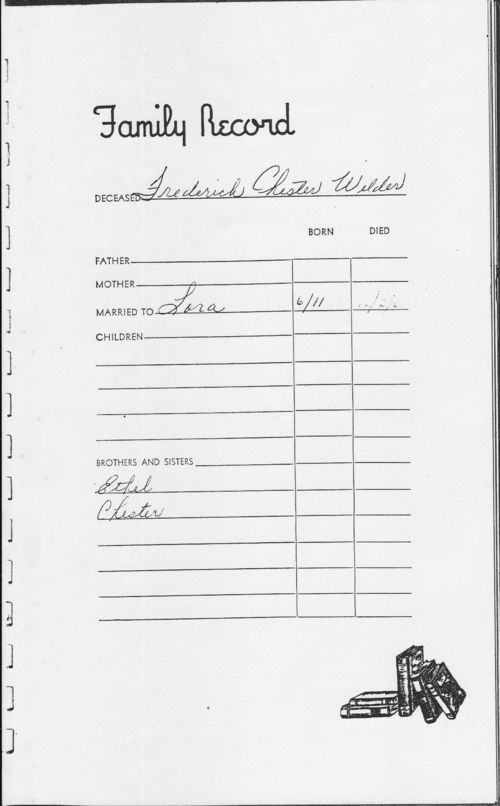 Family Record
DECEASED Frederick Chester Wilder
BORN DIED
FATHER
MOTHER
MARRIED TO Lora 6/11
CHILDREN
BROTHERS AND SISTERS
Ethel
Chester